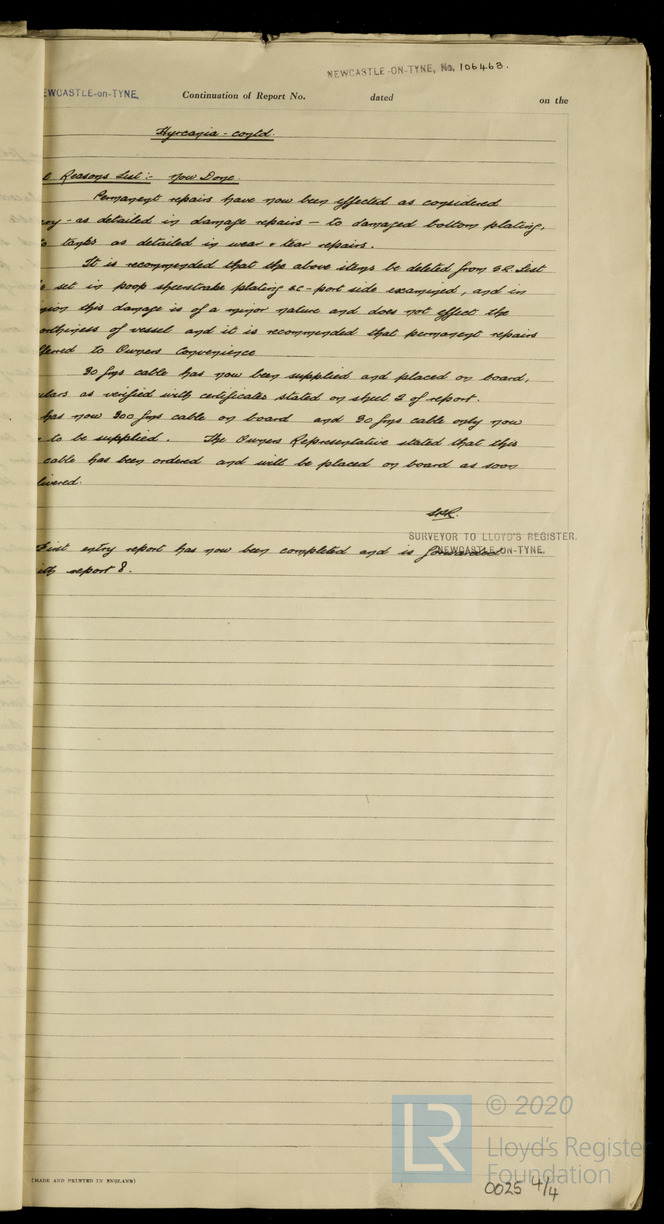 NEWCASTLE-ON-TYNE, No. 106463.
EWCASTLE-on-TYNE, Continuation of Report No. dated on the
Hyrcania - contd.
Reasons List :- Now Done.
Permanent repairs have now been effected as considered
ry - as detailed in damage repairs - to damaged bottom plating,
tanks as detailed in wear & tear repairs.
It is recommended that the above items be deleted from S.R. List
set in poop sheerstrake plating &c - port side examined, and in
nion this damage is of a minor nature and does not effect the
orthiness of vessel and it is recommended that permanent repairs
ferred to Owners Convenience
30 fms cable has now been supplied and placed on board,
ulars as verified with certificates stated on sheet 2 of report.
has now 200 fms cable on board and 30 fms cable only now
to be supplied. The Owners Representative stated that this
cable has been ordered and will be placed on board as soon
livered.
SURVEYOR TO LLOYD'S REGISTER,
NEWCASTLE-ON-TYNE.
First entry report has now been completed and is forwarded
ith report 8.
(MADE AND PRINTED IN ENGLAND)
LR
© 2020
Lloyd's Register
Foundation
0025 4/4